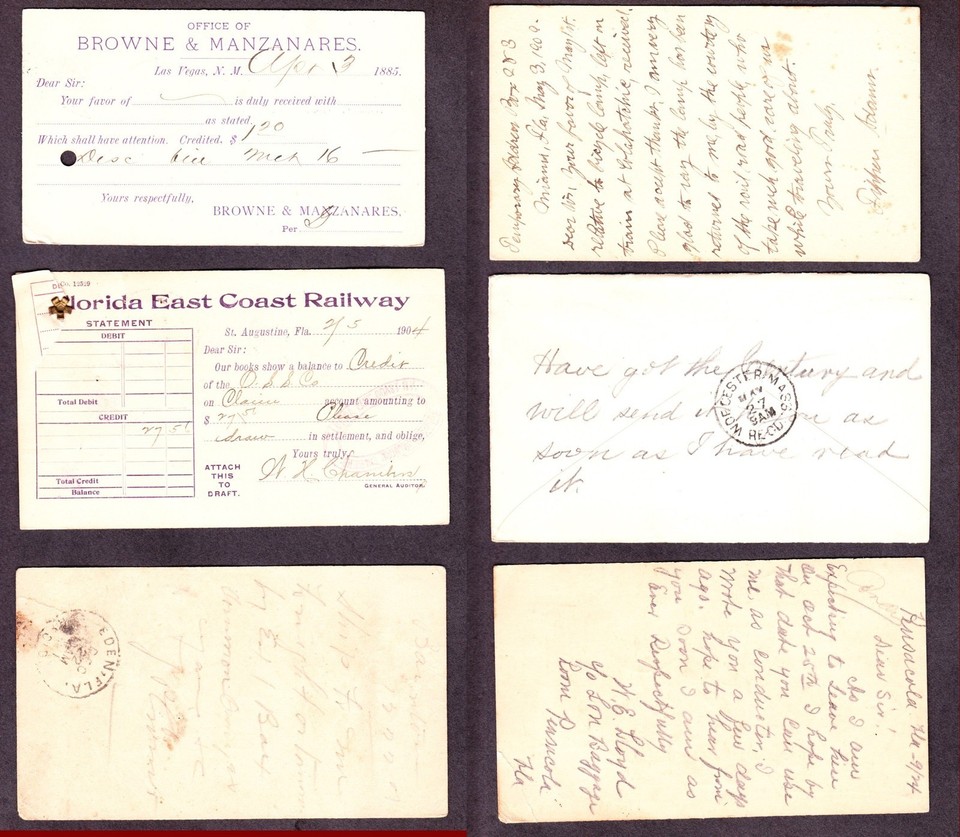 OFFICE OF
BROWNE & MANZANARES.
Las Vegas, N. M. Apr 3 1885.
Dear Sir:
Your favor of is duly received with
as stated.
Which shall have attention. Credited. $ 1 20
Mch 16
Yours respectfully,
BROWNE & MANZANARES.
Per
Co. 11519
lorida East Coast Railway
STATEMENT
DEBIT
Total Debit
CREDIT
27 51
Total Credit
Balance
St. Augustine, Fla. 2/5 1904
Dear Sir:
Our books show a balance to Credit
of the O.S.S. Co
on Claim account amounting to
$ 27 51 Please
draw in settlement, and oblige,
Yours truly,
GENERAL AUDITOR.
ATTACH
THIS
TO
DRAFT.
EDEN, FLA.
Ship to me
by 1 Box
Temporary Address, Box 283
Miami, Fla, May 3, 1902.
Dear Sir, your favor of May 1st.
relative to bicycle lamp, left on
train at received.
Please accept thanks. I am very
glad to say the lamp has been
returned to me, by the courtesy
of the rail road people, who
take such good care of us
while traveling about.
Very truly,
Have got the Century and
will send it to you as
soon as I have read
it.
WORCESTER, MASS.
MAY
27
9AM
REC'D
Pensacola Fla 9/24
Dear Sir:
As I am
Expecting to leave here
on Oct 25th I hope by
that date you can use
me as conductor, I
wrote you a few days
ago. hope to hear from
you soon I am as
Ever Respectfully
W. E. Lloyd
c/o Baggage
Room Pensacola
Fla